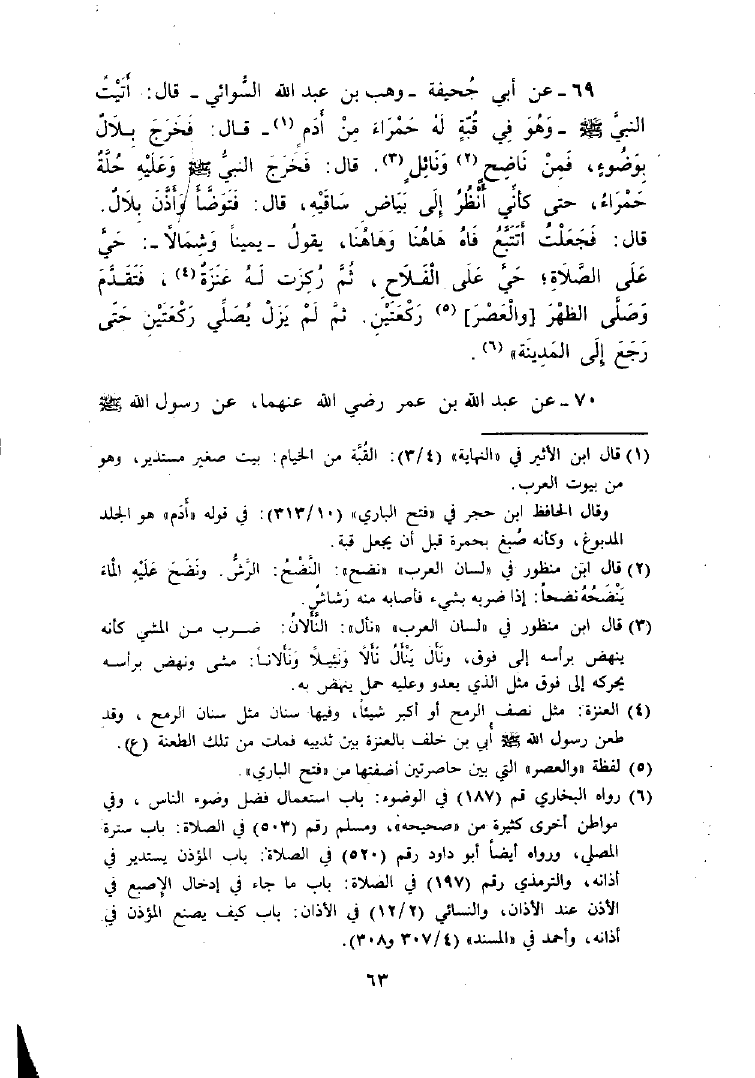 ٦٩ ـ عن أبي جُحيفة ـ وهب بن عبد الله السُّوائي ـ قال: أَتَيْتُ
النبيَّ ﷺ ـ وَهُوَ فِي قُبَّةٍ لَهُ حَمْرَاءَ مِنْ أَدَمٍ (١) ـ قال: فَخَرَجَ بِلَالٌ
بِوَضُوءٍ، فَمِنْ نَاضِحٍ (٢) وَنَائِلٍ (٣). قال: فَخَرَجَ النبيُّ ﷺ وَعَلَيْهِ حُلَّةٌ
حَمْرَاءُ، حتى كأنِّي أَنْظُرُ إِلَى بَيَاضِ سَاقَيْهِ، قال: فَتَوَضَّأَ وَأَذَّنَ بِلَالٌ.
قال: فَجَعَلْتُ أَتَتَبَّعُ فَاهُ هَاهُنَا وَهَاهُنَا، يقولُ ـ يميناً وَشِمَالاً ـ: حَيَّ
عَلَى الصَّلَاةِ؛ حَيَّ عَلَى الْفَلَاحِ، ثُمَّ رُكِزَت لَهُ عَنَزَةٌ (٤)، فَتَقَدَّمَ
وَصَلَّى الظهْرَ [والْعَصْرَ] (٥) رَكْعَتَيْنِ. ثمَّ لَمْ يَزَلْ يُصَلِّي رَكْعَتَيْنِ حَتَّى
رَجَعَ إِلَى المَدِينَة» (٦).
٧٠ ـ عن عبد الله بن عمر رضي الله عنهما، عن رسول الله ﷺ
(١) قال ابن الأثير في «النهاية» (٣/٤): القُبَّة من الخيام: بيت صغير مستدير، وهو
من بيوت العرب.
وقال الحافظ ابن حجر في «فتح الباري» (٣١٣/١٠): في قوله «أَدَم» هو الجلد
المدبوغ، وكأنه صُبغ بحمرة قبل أن يجعل قبة.
(٢) قال ابن منظور في «لسان العرب» «نضح»: النَّضْحُ: الرَّشُّ. ونَضَحَ عَلَيْهِ المْاءَ
يَنْضَحُهُ نضحاً: إذا ضربه بشيء فأصابه منه رَشاشٌ.
(٣) قال ابن منظور في «لسان العرب» «نأل»: النَّأَلانُ: ضرب من المشي كأنه
ينهض برأسه إلى فوق، ونَأَل يَنْأَلُ نَأْلًا وَنَئِيلاً وَنَأَلاناً: مشى ونهض برأسه
يحركه إلى فوق مثل الذي يعدو وعليه حمل ينهض به.
(٤) العنزة: مثل نصف الرمح أو أكبر شيئاً، وفيها سنان مثل سنان الرمح، وقد
طعن رسول الله ﷺ أُبي بن خلف بالعنزة بين ثدييه فمات من تلك الطعنة (ع).
(٥) لفظة «والعصر» التي بين حاصرتين أضفتها من «فتح الباري».
(٦) رواه البخاري قم (١٨٧) في الوضوء: باب استعمال فضل وضوء الناس، وفي
مواطن أخرى كثيرة من «صحيحه»، ومسلم رقم (٥٠٣) في الصلاة: باب سترة
المصلي، ورواه أيضاً أبو داود رقم (٥٢٠) في الصلاة: باب المؤذن يستدير في
أذانه، والترمذي رقم (١٩٧) في الصلاة: باب ما جاء في إدخال الإصبع في
الأذن عند الأذان، والنسائي (١٢/٢) في الأذان: باب كيف يصنع المؤذن في
أذانه، وأحمد في «المسند» (٣٠٧/٤ و٣٠٨).
٦٣